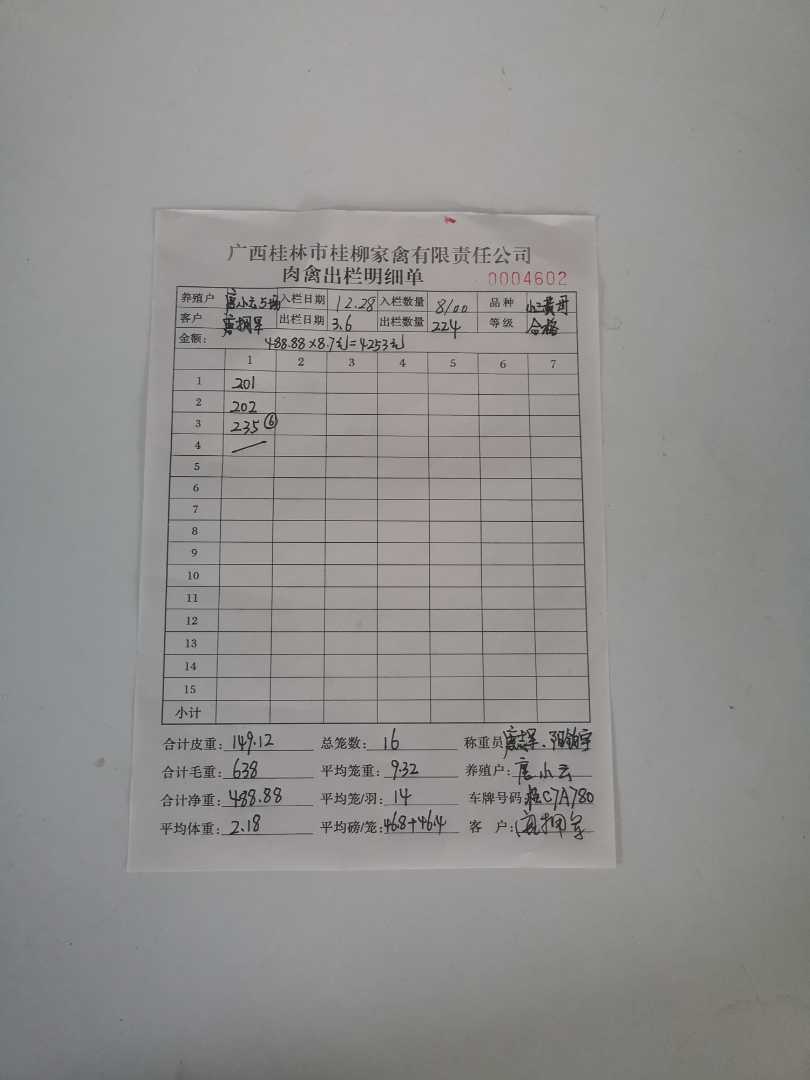 广西桂林市桂柳家禽有限责任公司
肉禽出栏明细单 0004602
养殖户 唐小云5场 入栏日期 12.28 入栏数量 8100 品种 小黄
客户 出栏日期 3.6 出栏数量 224 等级 合格
金额: 488.88×8.7元=4253元
1 2 3 4 5 6 7
1 201
2 202
3 235 ⑥
4
5
6
7
8
9
10
11
12
13
14
15
小计
合计皮重: 149.12 总笼数: 16 称重员
合计毛重: 638 平均笼重: 9.32 养殖户: 唐小云
合计净重: 488.88 平均笼/羽: 14 车牌号码: 桂C7A780
平均体重: 2.18 平均磅/笼: 46.8+46.4 客户: